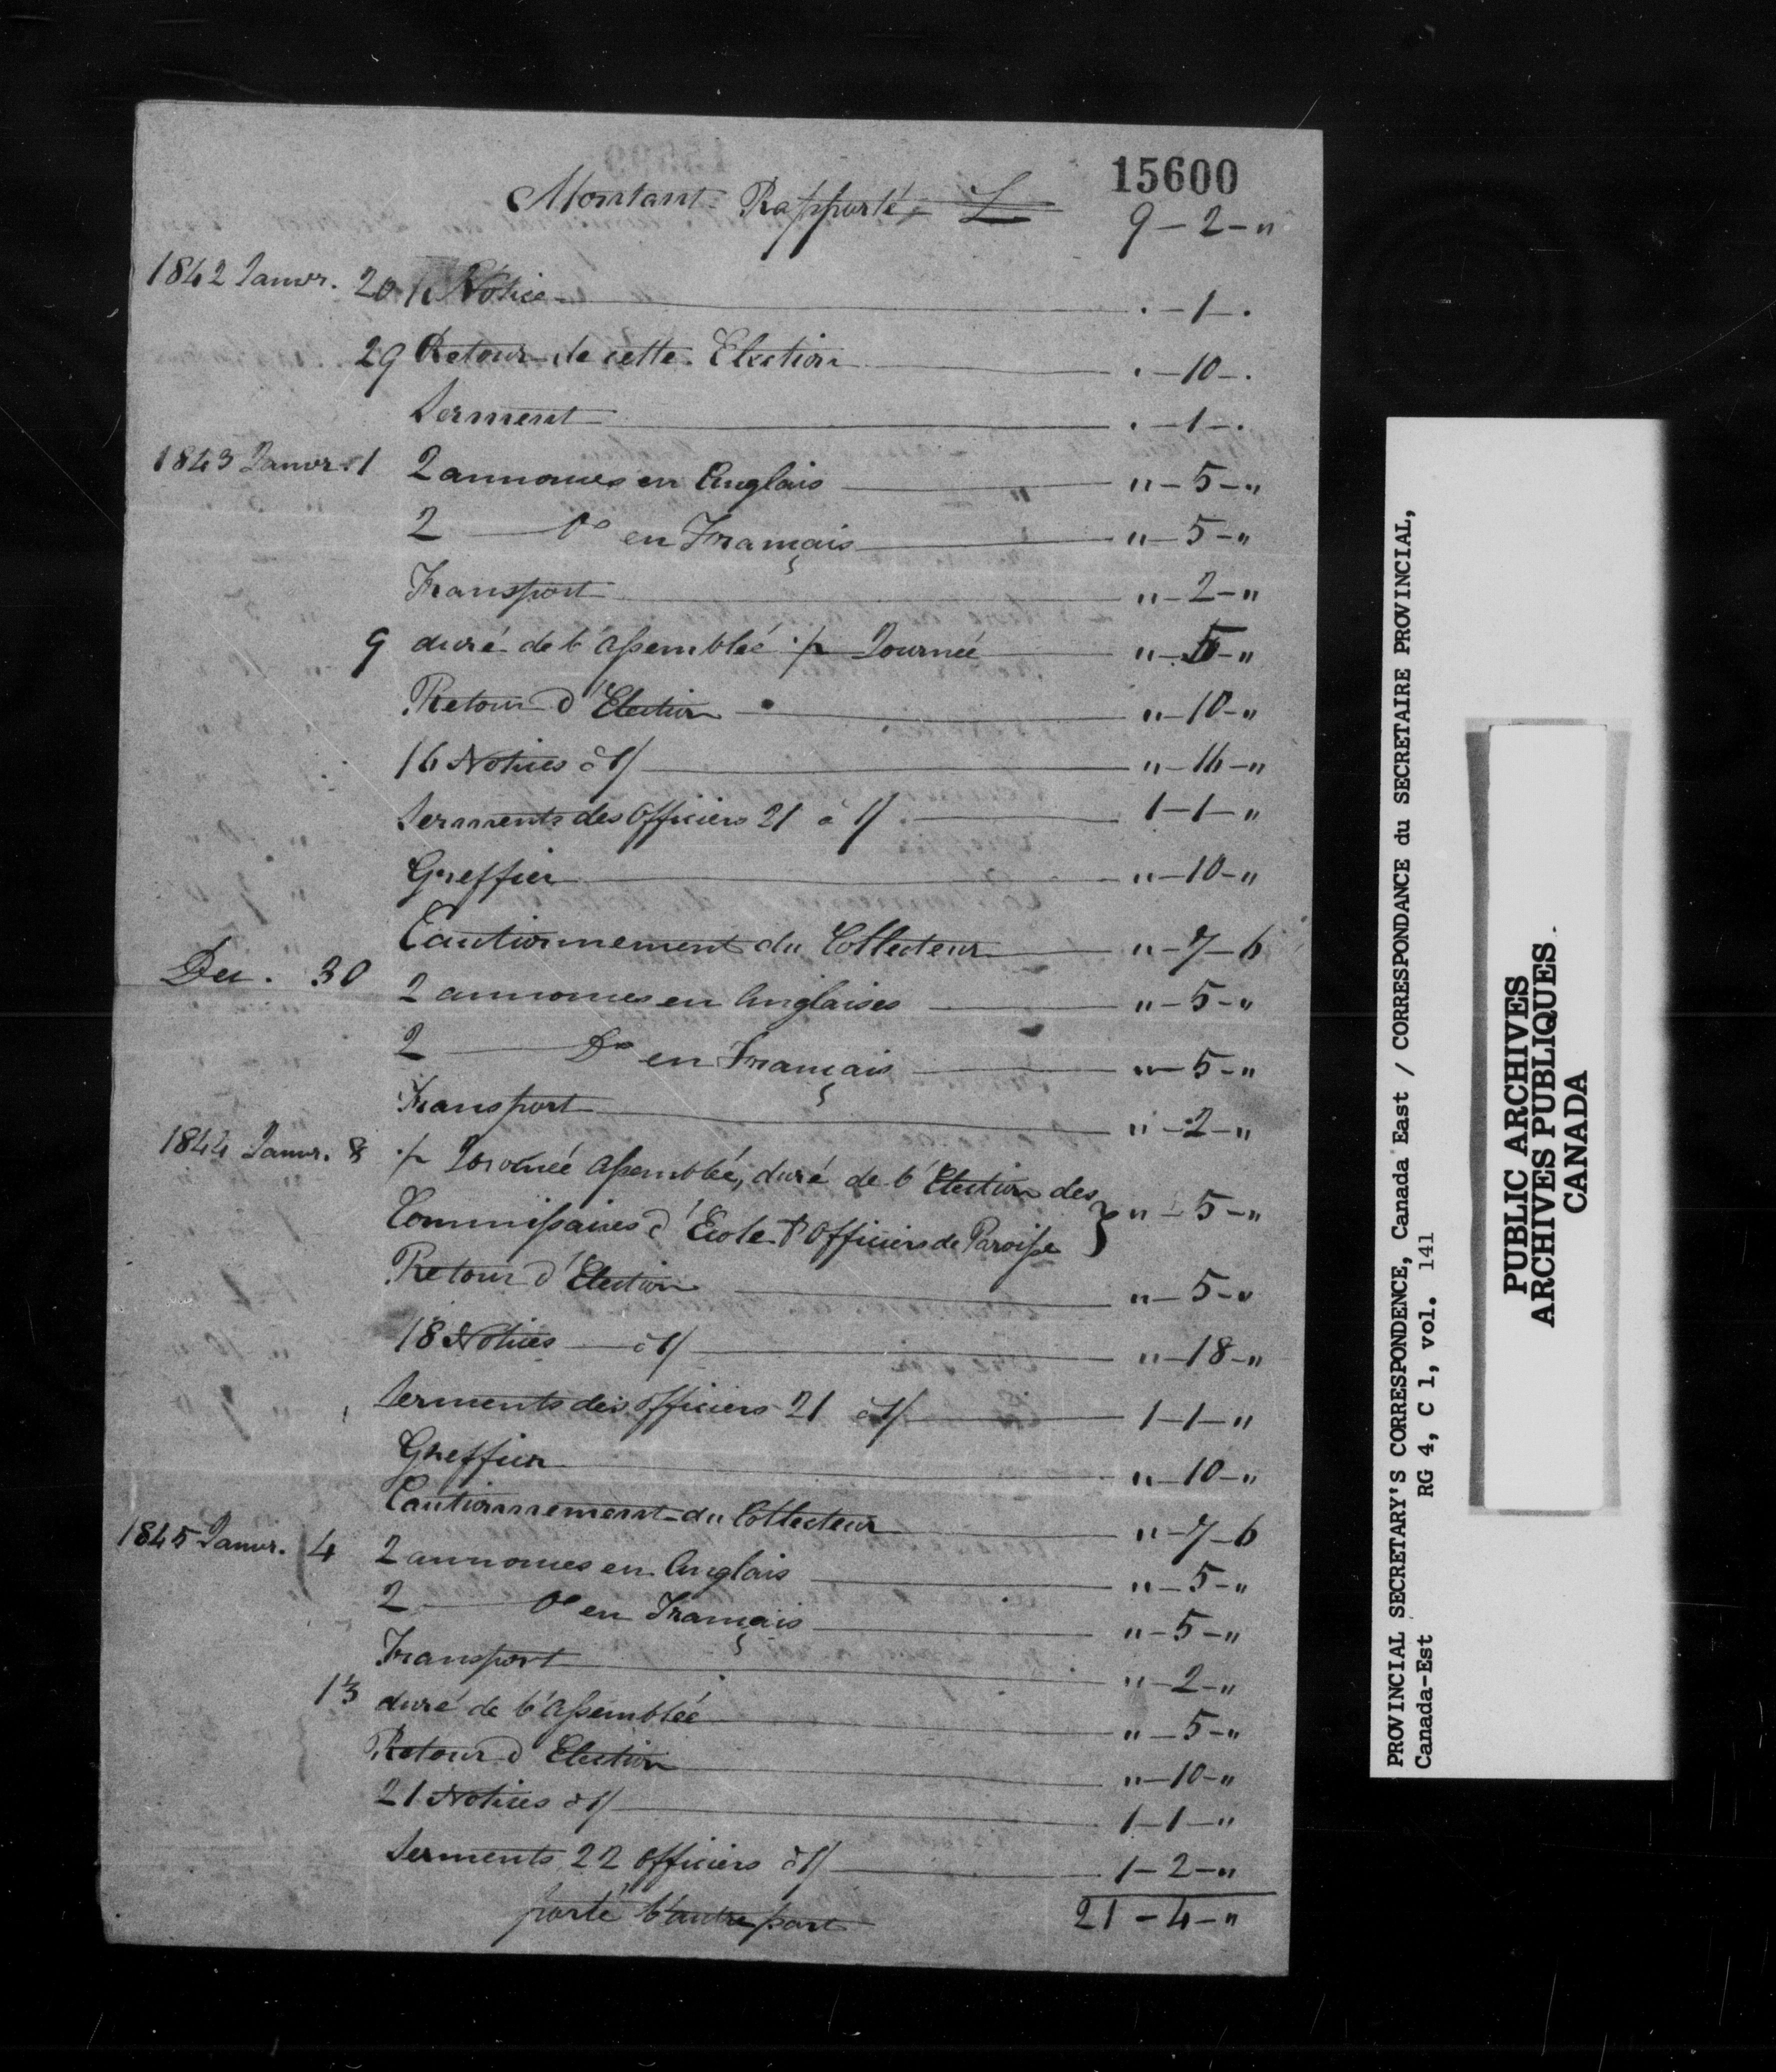 15600
Montant Rapporté £ 9-2-"
1842 Janvr. 20 1 Notice . -1- .
29 Retour de cette Election . -10- .
Serment . -1- .
1843 Janvr. 1 2 annonces en Anglais " -5- "
2 Do en Français " -5- "
Transport " -2- "
9 duré de l'assemblée p Journée " -5- "
Retour d'Election " -10- "
16 Notices à 1/ " -16- "
Serments des Officiers 21 à 1/ 1-1- "
Greffier " -10- "
Cautionnement du Collecteur " -7-6
Dec. 30 2 annonces en Anglaises " -5- "
2 Do en Français " -5- "
Transport " -2- "
1844 Janvr. 8 p Journéé assemblée, duré de l'Election des
Commissaires d'Ecole & Officiers de Paroisse } " -5- "
Retour d'Election " -5- "
18 Notices à 1/ " -18- "
Serments des officiers 21 à 1/ 1-1- "
Greffier " -10- "
Cautionnement du Collecteur " -7-6
1845 Janvr. 4 2 annonces en Anglais " -5- "
2 Do en Français " -5- "
Transport " -2- "
13 duré de l'assemblée " -5- "
Retour d'Election " -10- "
21 Notices à 1/ 1-1- "
Serments 22 officiers à 1/ 1-2- "
porté l'autre part 21-4- "
PROVINCIAL SECRETARY'S CORRESPONDENCE, Canada East / CORRESPONDANCE du SECRETAIRE PROVINCIAL,
Canada-Est RG 4, C 1, vol. 141
PUBLIC ARCHIVES
ARCHIVES PUBLIQUES
CANADA